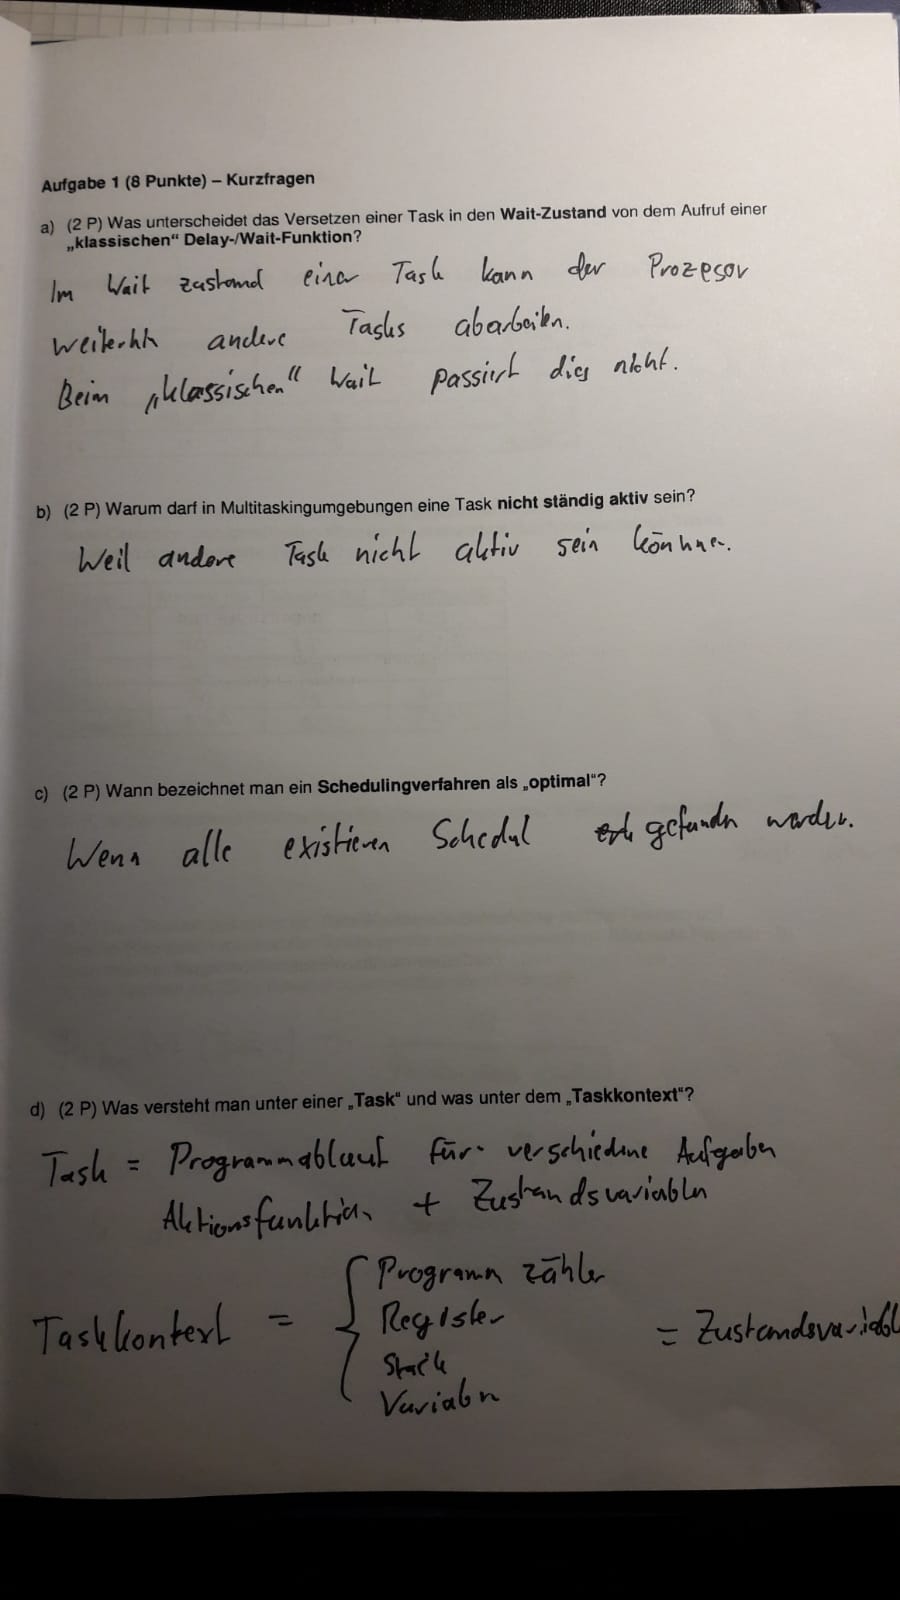 Aufgabe 1 (8 Punkte) – Kurzfragen
a) (2 P) Was unterscheidet das Versetzen einer Task in den Wait-Zustand von dem Aufruf einer
„klassischen“ Delay-/Wait-Funktion?
Im Wait zustand einer Task kann der Prozesor
weiterhin andere Tasks abarbeiten.
Beim „klassischen“ Wait passiert dies nicht.
b) (2 P) Warum darf in Multitaskingumgebungen eine Task nicht ständig aktiv sein?
Weil andere Task nicht aktiv sein können.
c) (2 P) Wann bezeichnet man ein Schedulingverfahren als „optimal“?
Wenn alle existieren Schedul gefunden werden.
d) (2 P) Was versteht man unter einer „Task“ und was unter dem „Taskkontext“?
Task = Programmablauf für verschiedene Aufgaben
Aktionsfunktion + Zustandsvariablen
Taskkontext = { Programm zähler
Register
Stack
Variablen
= Zustandsvariabl